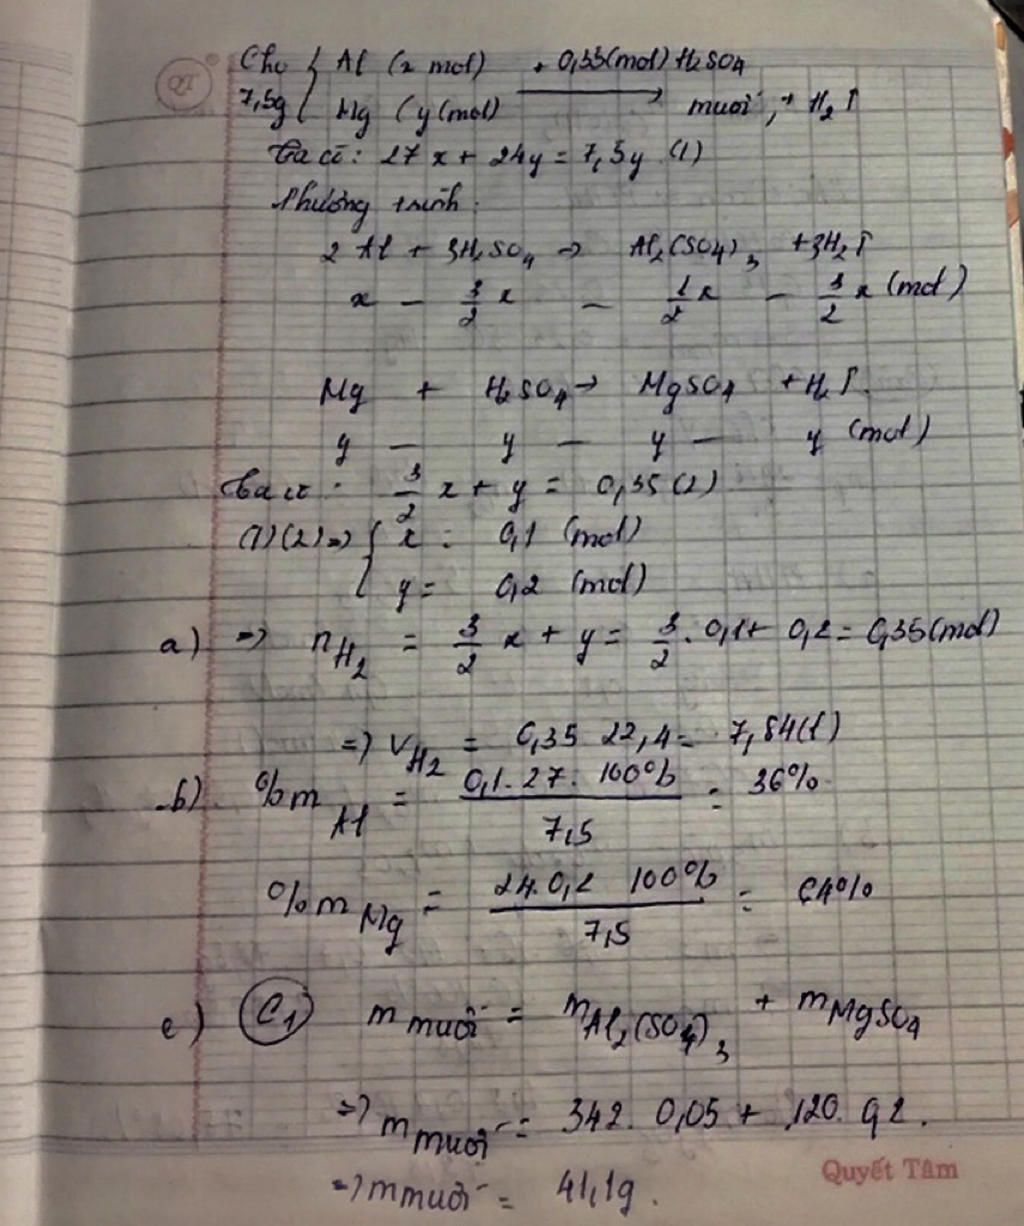 Cho { Al (x mol) + 0,35(mol) H2SO4
7,5g { Mg (y(mol) → muối, + H2↑
Ta có: 27x + 24y = 7,5y (1)
Phương trình:
2Al + 3H2SO4 → Al2(SO4)3 + 3H2↑
x – 3/2 x – 1/2 x – 3/2 x (mol)
Mg + H2SO4 → MgSO4 + H2↑.
y – y – y – y (mol)
Ta có: 3/2 x + y = 0,35 (2)
(1)(2) ⇒ { x = 0,1 (mol)
{ y = 0,2 (mol)
a) ⇒ nH2 = 3/2 x + y = 3/2 . 0,1 + 0,2 = 0,35(mol)
⇒ VH2 = 0,35 . 22,4 = 7,84(l)
b) %mAl = 0,1 . 27 . 100% / 7,5 = 36%
%mMg = 24 . 0,2 . 100% / 7,5 = 64%
c) C1 mmuối = mAl2(SO4)3 + mMgSO4
⇒ mmuối = 342 . 0,05 + 120 . 0,2 .
⇒ mmuối = 41,1g .
Quyết Tâm